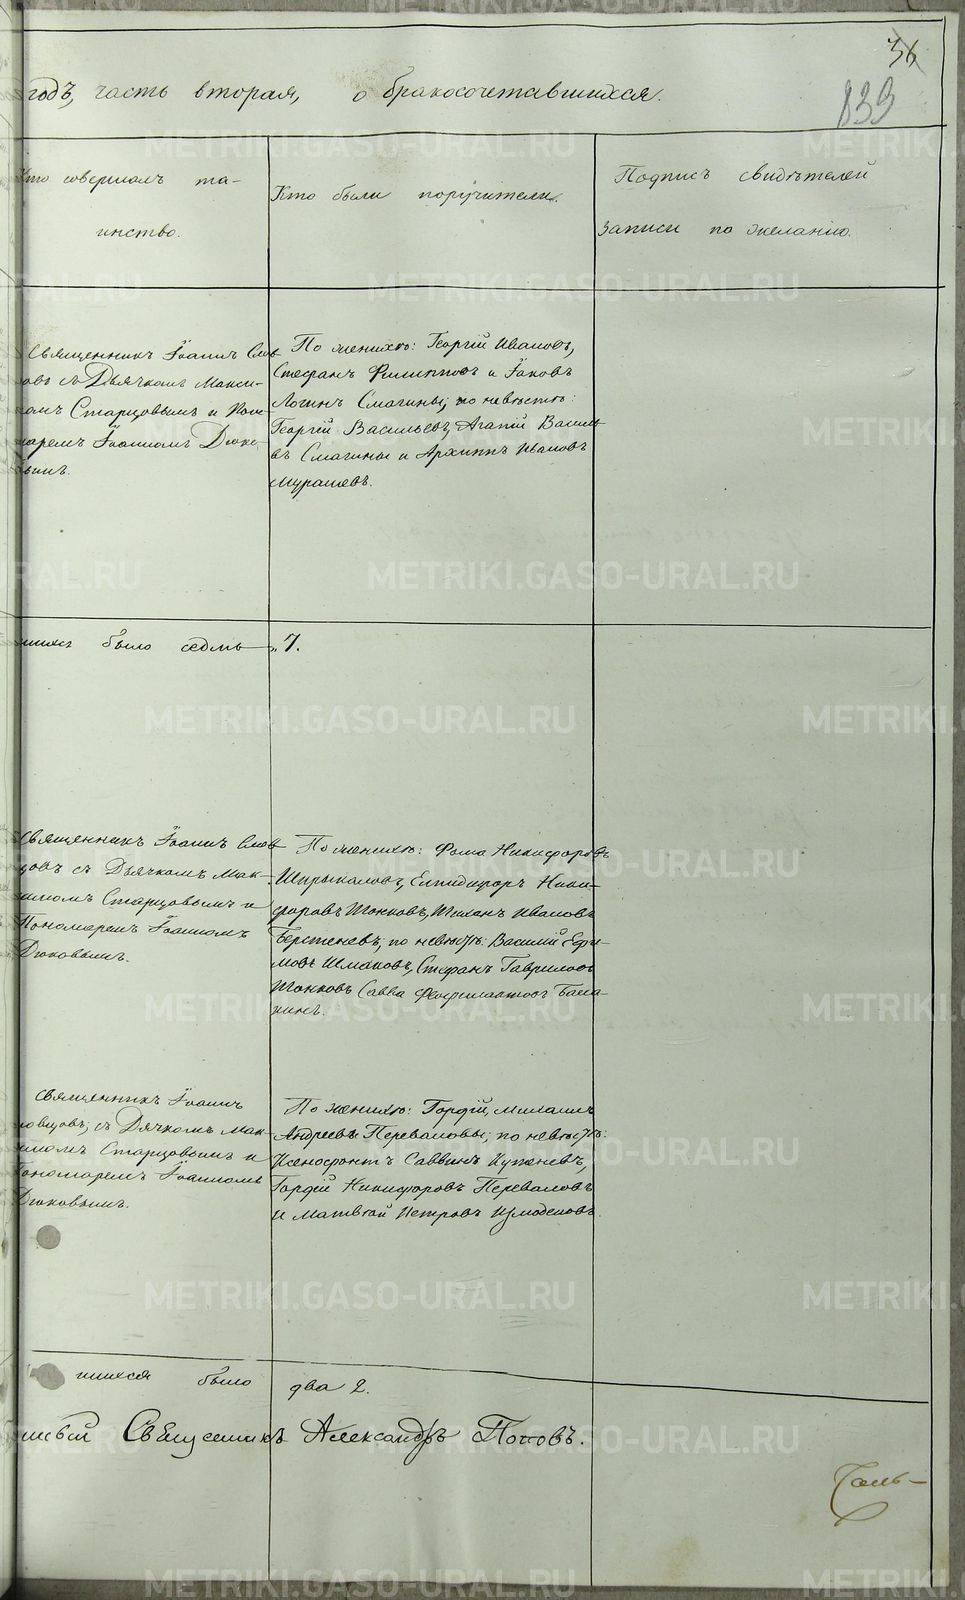 36
839
годъ, часть вторая, о бракосочетавшихся.
Кто совершалъ та-
инство.
Кто были поручители.
Подпись свидѣтелей
записи по желанію.
Священникъ Іоаннъ Слов-
цовъ съ Дьячкомъ Макси-
момъ Старцовымъ и Поно-
маремъ Іоанномъ Дюко-
вымъ.
По женихѣ: Георгій Ивановъ,
Стефанъ Филипповъ и Іаковъ
Логинъ Смагины; по невѣстѣ:
Георгій Васильевъ, Агапій Василь-
въ Смагины и Архиппъ Ивановъ
Мурашевъ.
шихся было седмь 7.
Священникъ Іоаннъ Слов-
цовъ съ Дьячкомъ Мак-
симомъ Старцовымъ и
Пономаремъ Іоанномъ
Дюковымъ.
По женихѣ: Фома Никифоровъ
Шпрыкаловъ, Елпидифоръ Ники-
форовъ Тонковъ, Иванъ Ивановъ
Берстеневъ, по невѣстѣ: Василій Ефи-
мовъ Шмаковъ, Стефанъ Гавриловъ
Тонковъ Савва Феофилактовъ Бала-
кинъ.
Священникъ Іоаннъ
ловцовъ, съ Дячкомъ Мак-
симомъ Старцовымъ и
Пономаремъ Іоанномъ
Дюковымъ.
По женихѣ: Гордій, Михаилъ
Андреевы Переваловы; по невѣстѣ:
Ксенофонтъ Саввинъ Купеневъ,
Гордій Никифоровъ Переваловъ
и Матвѣй Петровъ Измоденовъ.
шихся было два 2.
Священникъ Александръ Поповъ.
METRIKI.GASO-URAL.RU